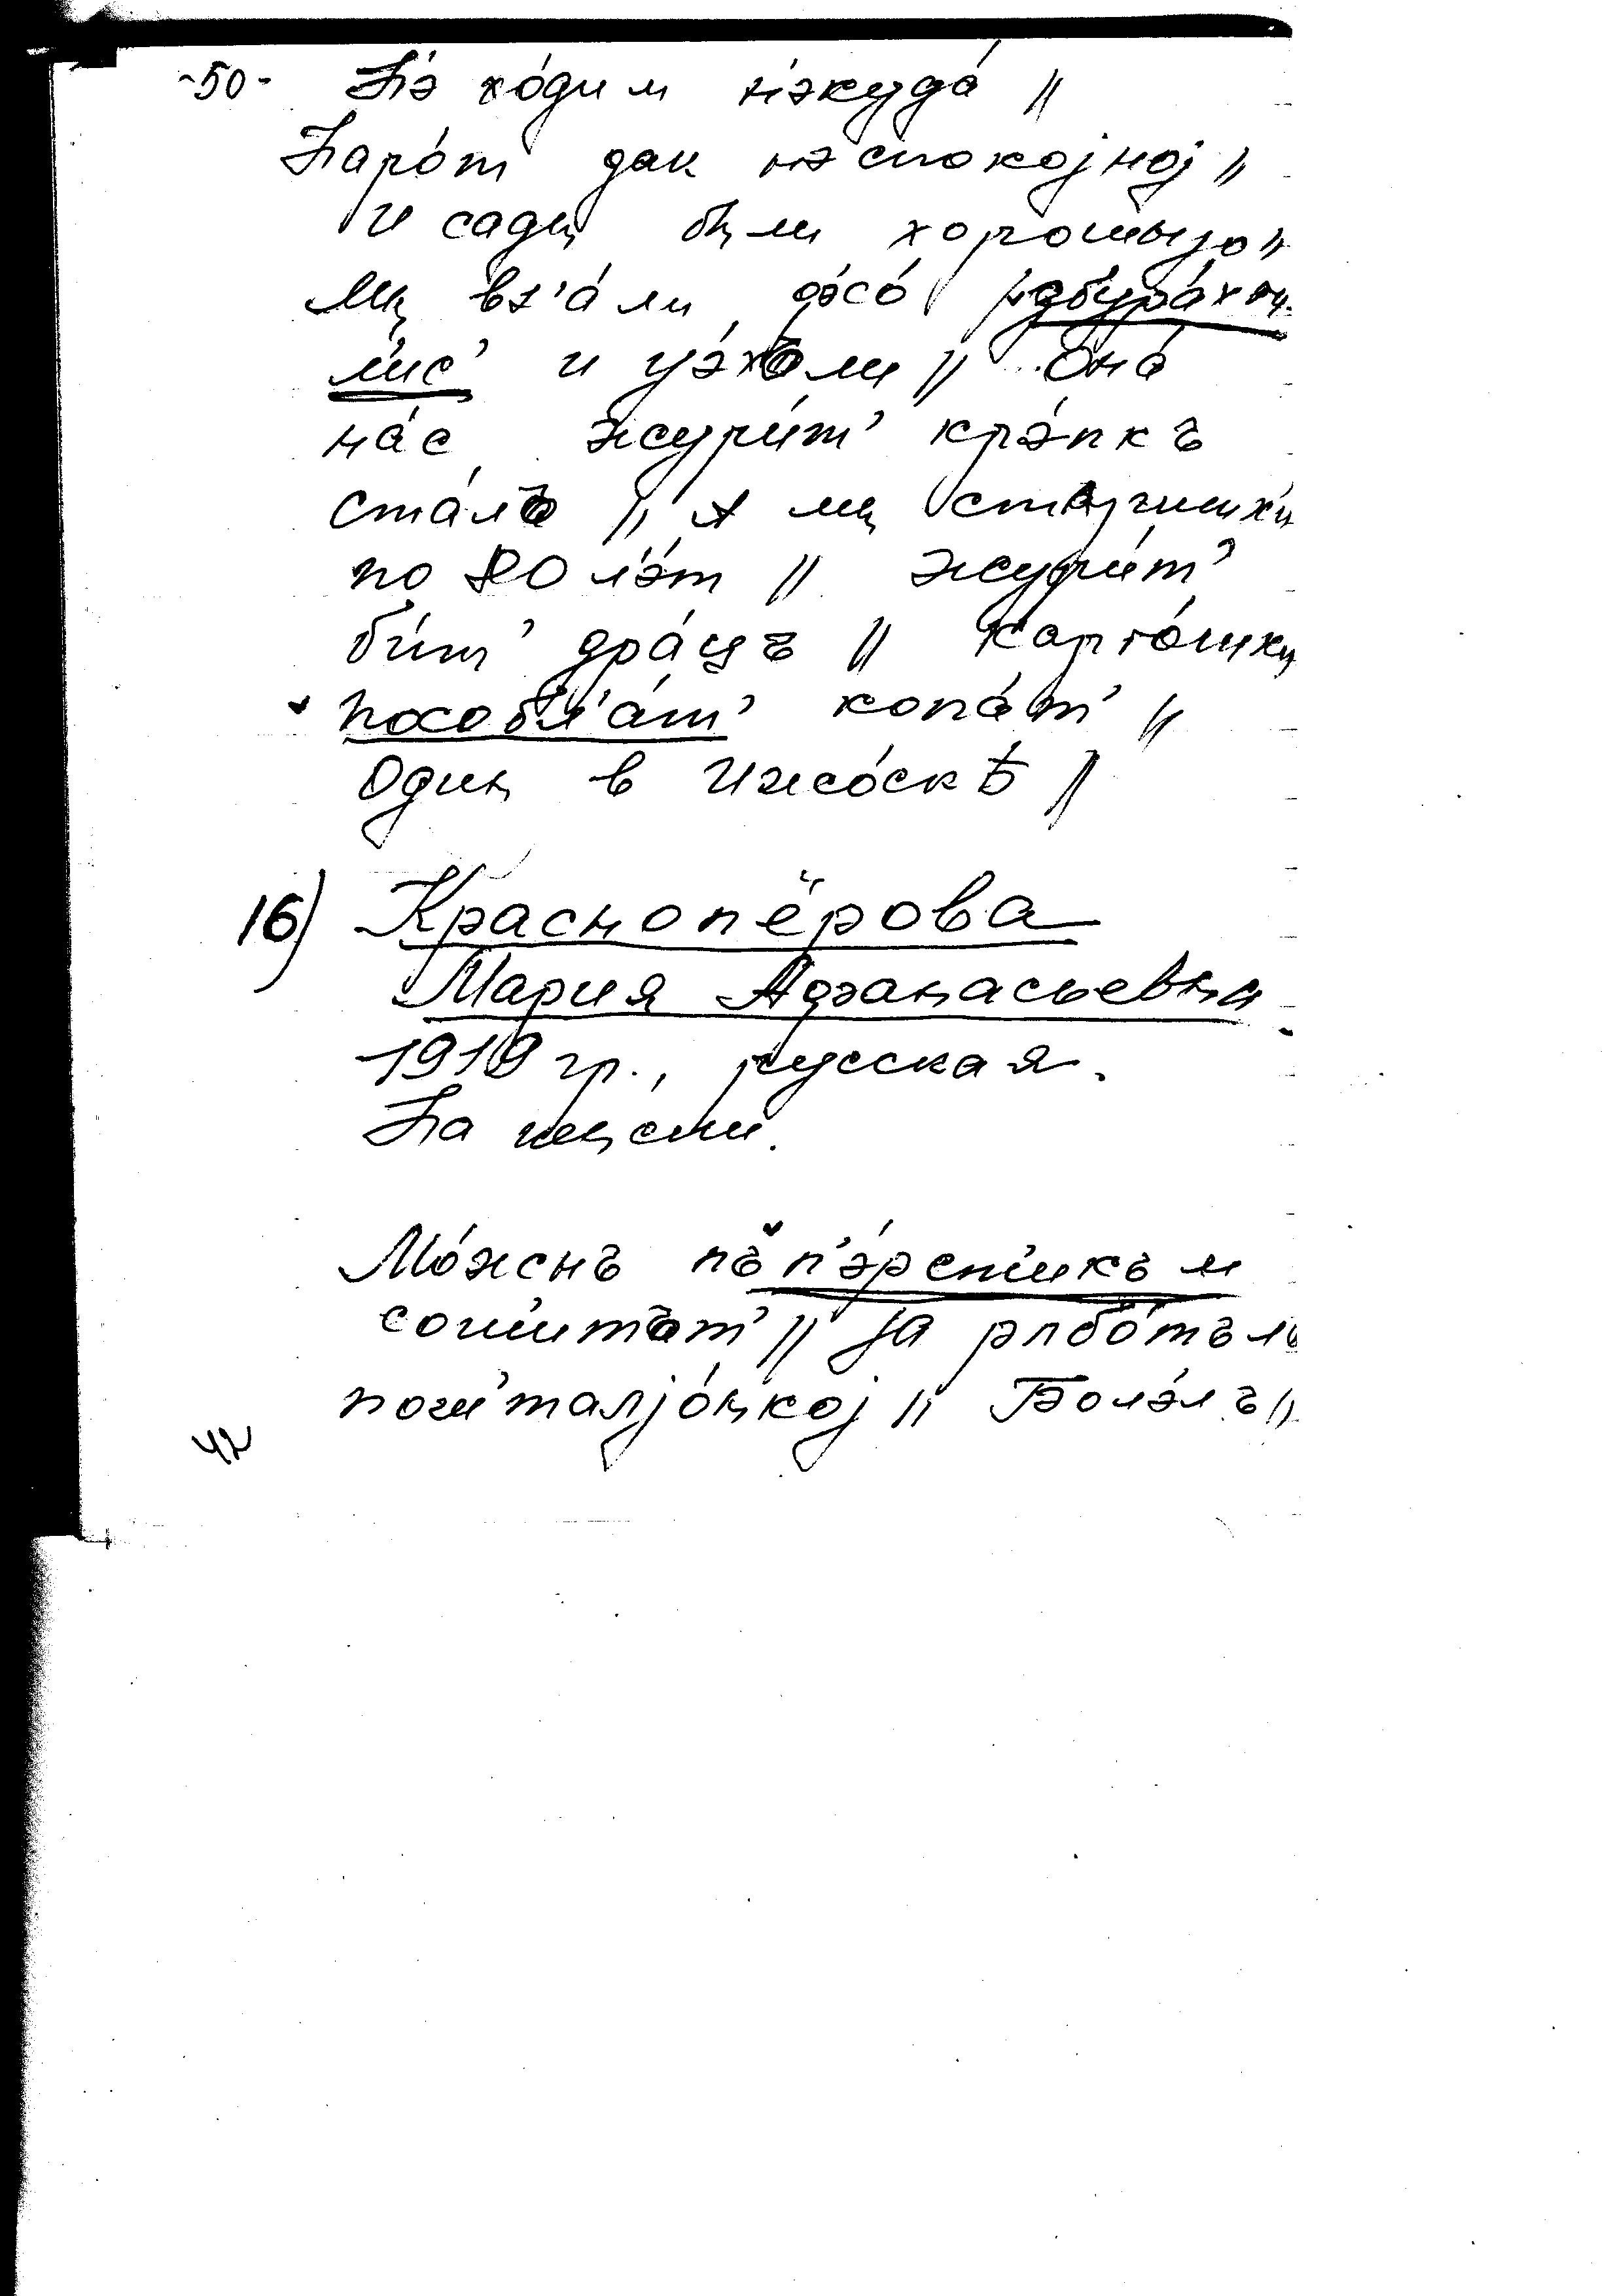 -50- Нэ хо́дим нэкуда́ //
Наро́т дак нэспокојној //
И сады были хорошыјо //
Мы вз'а́ли фс'о́
л'ис' и уэ́хали // Она́
на́с журит' крэ́пкъ
ста́ла // А мы старушки
по 80 л'эт // журит'
бит' дра́цъ // Карто́шкы
пособл'а́т' копа́т' //
Один в Ижо́скъ //
16) Краснопёрова
Мария Афанасьевна
1919 гр., русская.
На пенсии.
Мо́жнъ пъ п'э́рст'икъм
сошшитат' // ја рабо́тълъ
почтал'јо́нкој // Болэ́лъ //
42